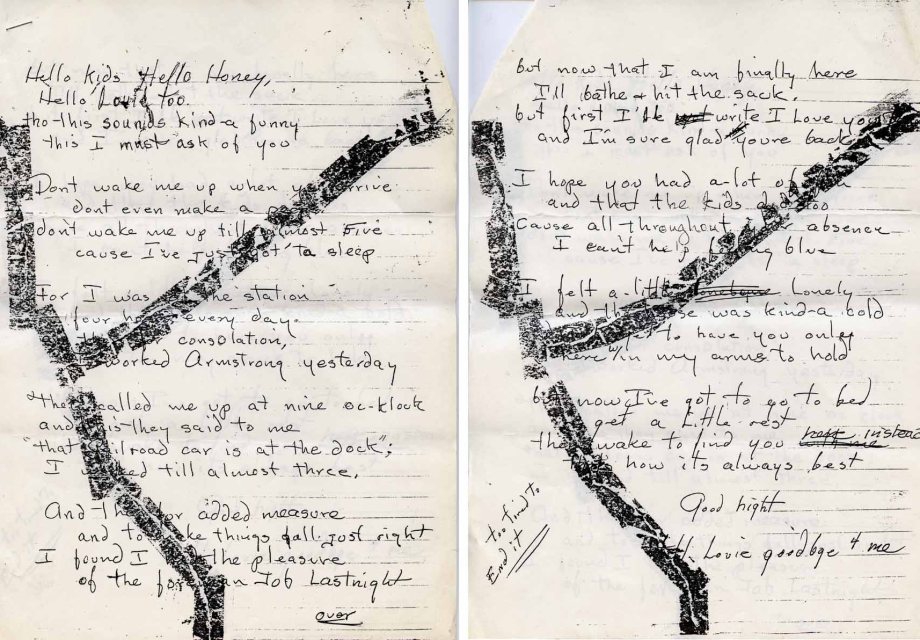 Hello Kids Hello Honey,
Hello Louie too.
tho this sounds kind-a funny
this I must ask of you
Dont wake me up when arrive
dont even make a
don't wake me up till most Five
cause I've just got'ta sleep
For I was the station
four every day.
consolation,
worked Armstrong yesterday
called me up at nine oc-klock
and they said to me
"that railroad car is at the dock";
I till almost three.
And for added measure
and to things fall just right
I found I the pleasure
of the Job Lastnight
over
but now that I am finally here
I'll bathe + hit the sack.
but first I'll write I Love you
and I'm sure glad youre back
I hope you had a-lot of
and that the kids too
Cause all throughout absence
I can't help blue
I felt a-little Lonely
and the was kind-a cold
to have you only
here w/in my arms to hold
but now I've got to go to bed
get a little rest
then wake to find you instead
how its always best
Good night
Louie goodbye 4 me
too tired to
End it